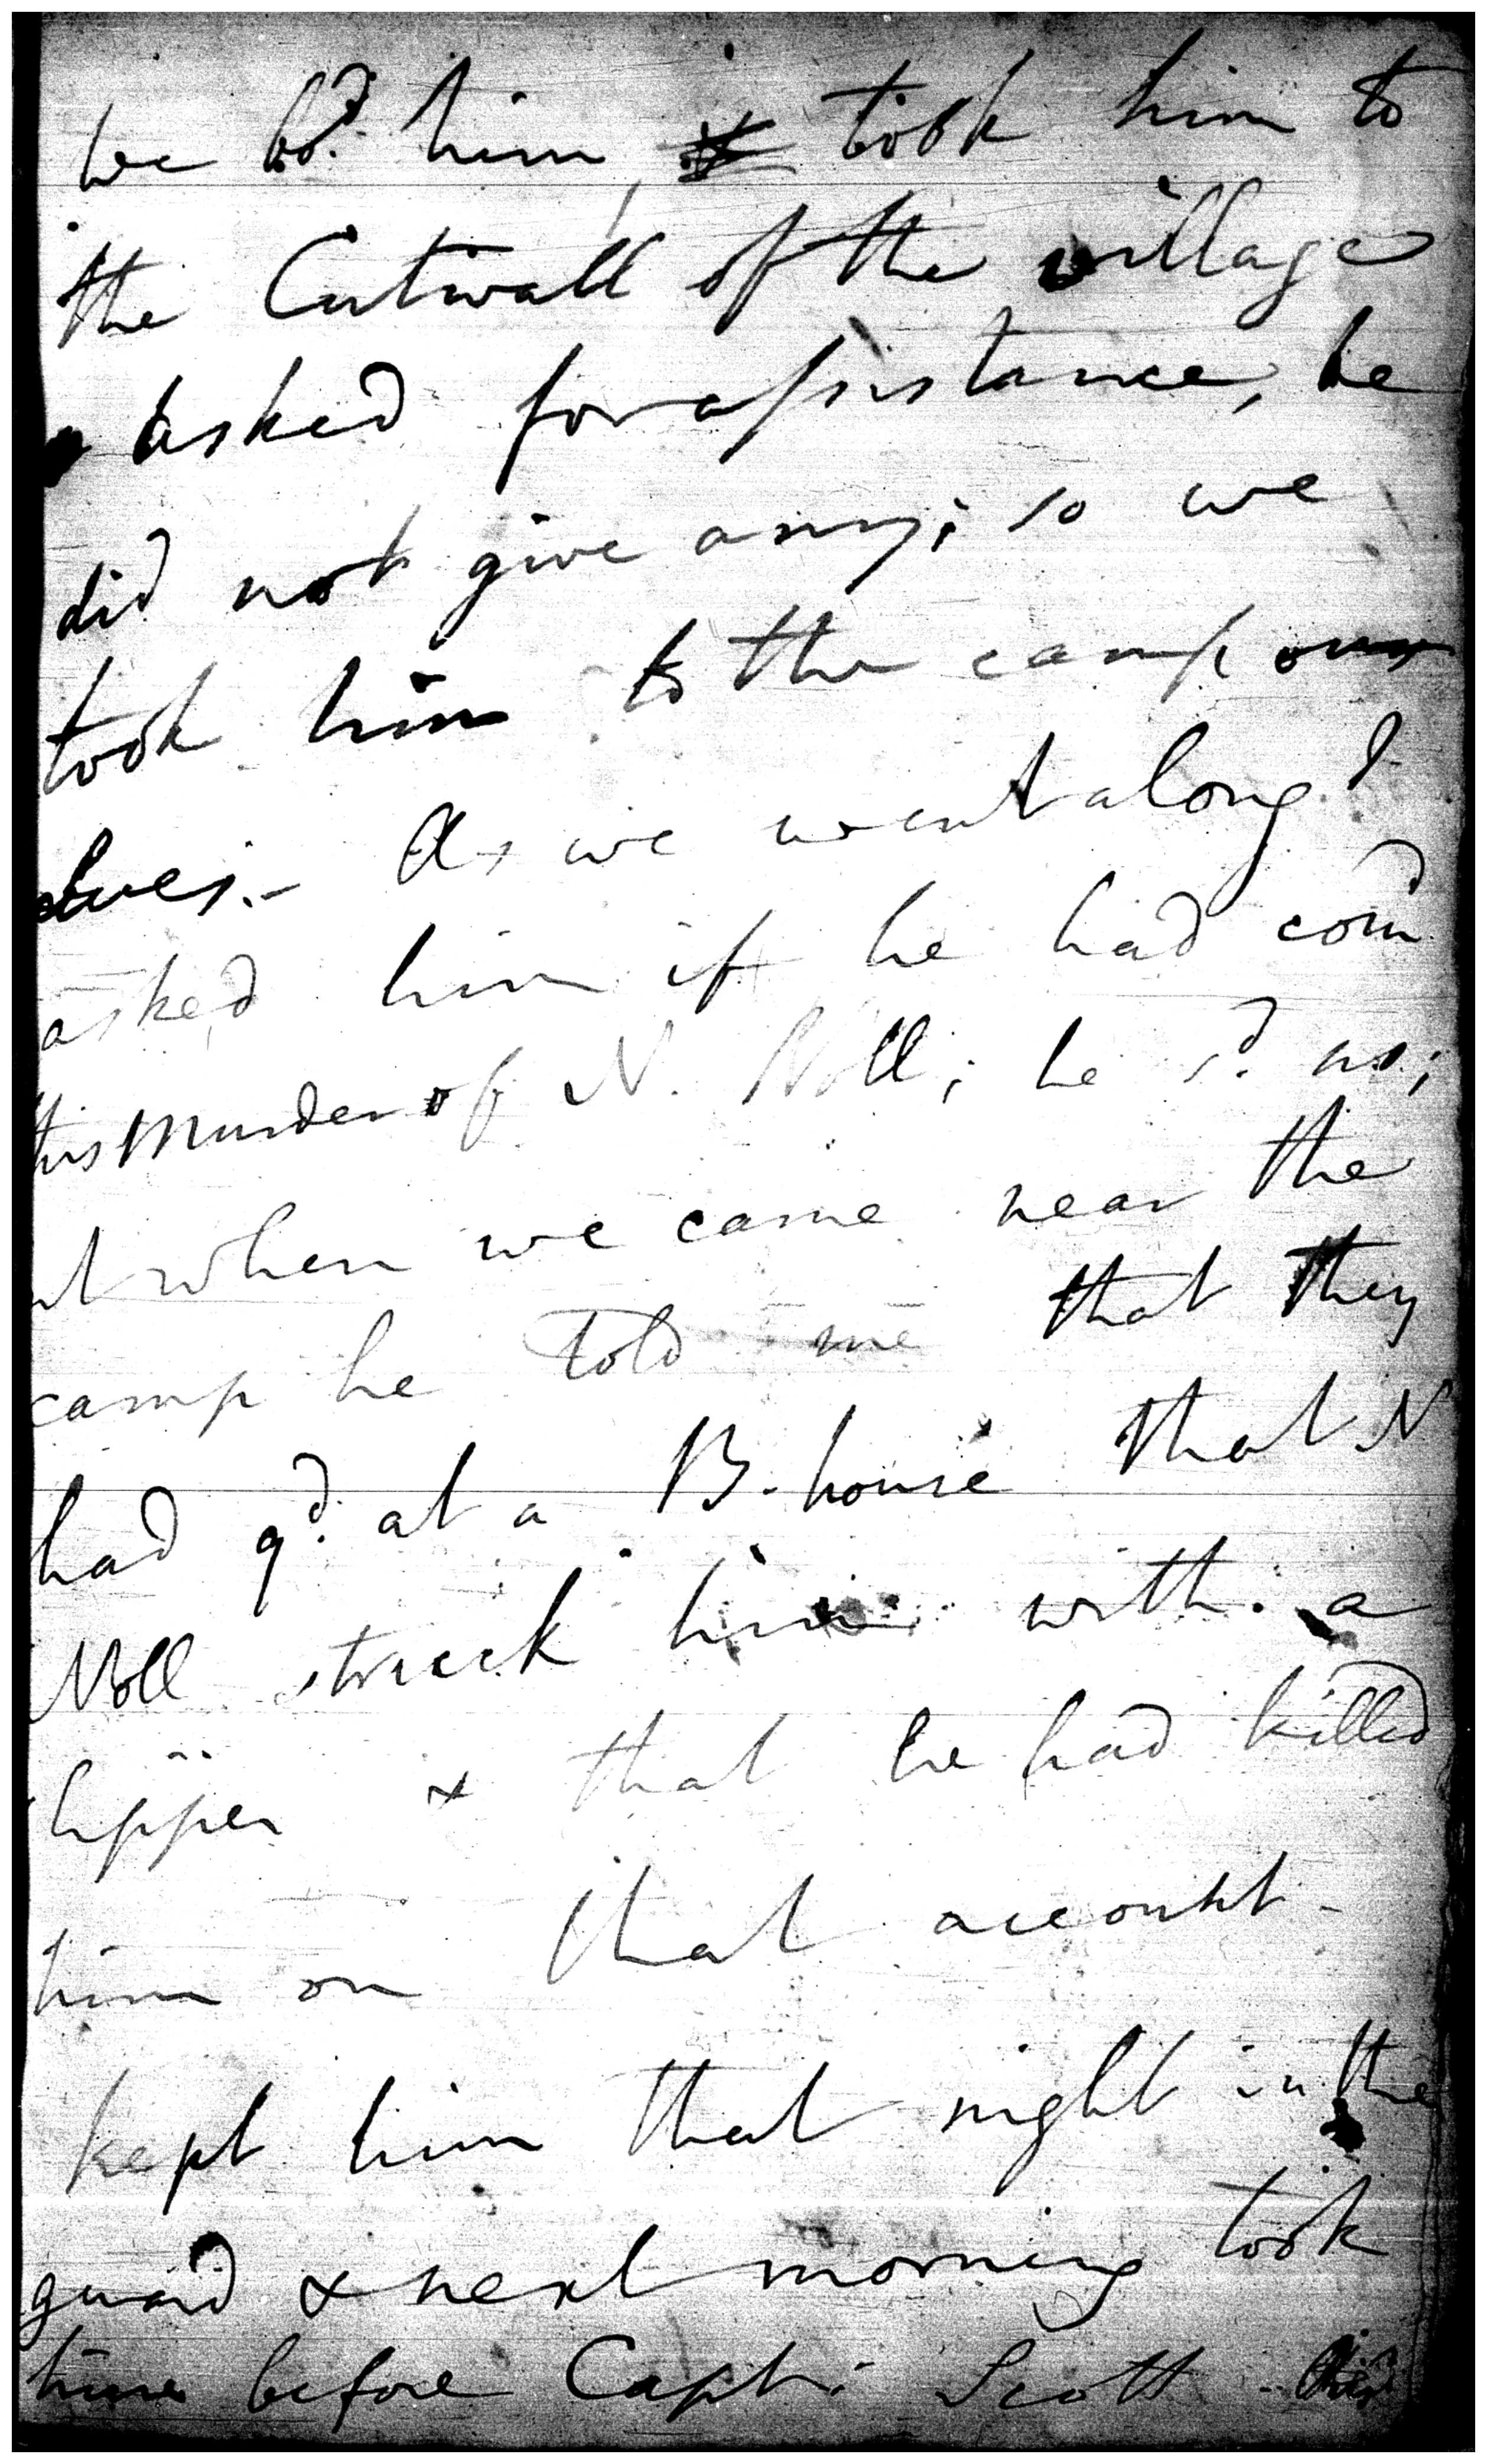 we bd. him, & took him to
the Cutwall of the village
& asked for assistance, he
did not give any; so we
took him to the camp our
selves.- As we went along I
asked him if he had comd.
this Murder of N. Noll; he sd. no;
but when we came near the
camp he told me that they
had qd. at a B. house that N
Noll struck him with a
slipper & that he had killed
him on that account -
kept him that night in the
guard & next morning took
him before Capt. Scott